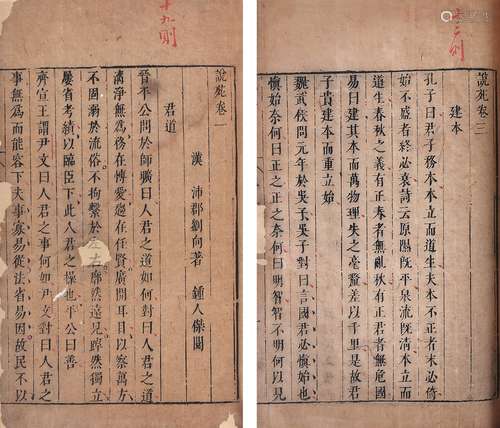 十九則
說苑卷一
漢 沛郡劉向著 鍾人傑閱
君道
晉平公問於師曠曰人君之道如何對曰人君之道
清淨無爲務在博愛趨在任賢廣開耳目以察萬方
不固溺於流俗不拘繫於左右廓然遠見踔然獨立
屢省考績以臨臣下此人君之操也平公曰善
齊宣王謂尹文曰人君之事何如尹文對曰人君之
事無爲而能容下夫事寡易從法省易因故民不以
說苑卷三
建本
孔子曰君子務本本立而道生夫本不正者末必倚
始不盛者終必衰詩云原隰既平泉流既清本立而
道生春秋之義有正春者無亂秋有正君者無危國
易曰建其本而萬物理失之毫釐差以千里是故君
子貴建本而重立始
魏武侯問元年於吳子吳子對曰言國君必慎始也
慎始奈何曰正之正之奈何曰明智智不明何以見